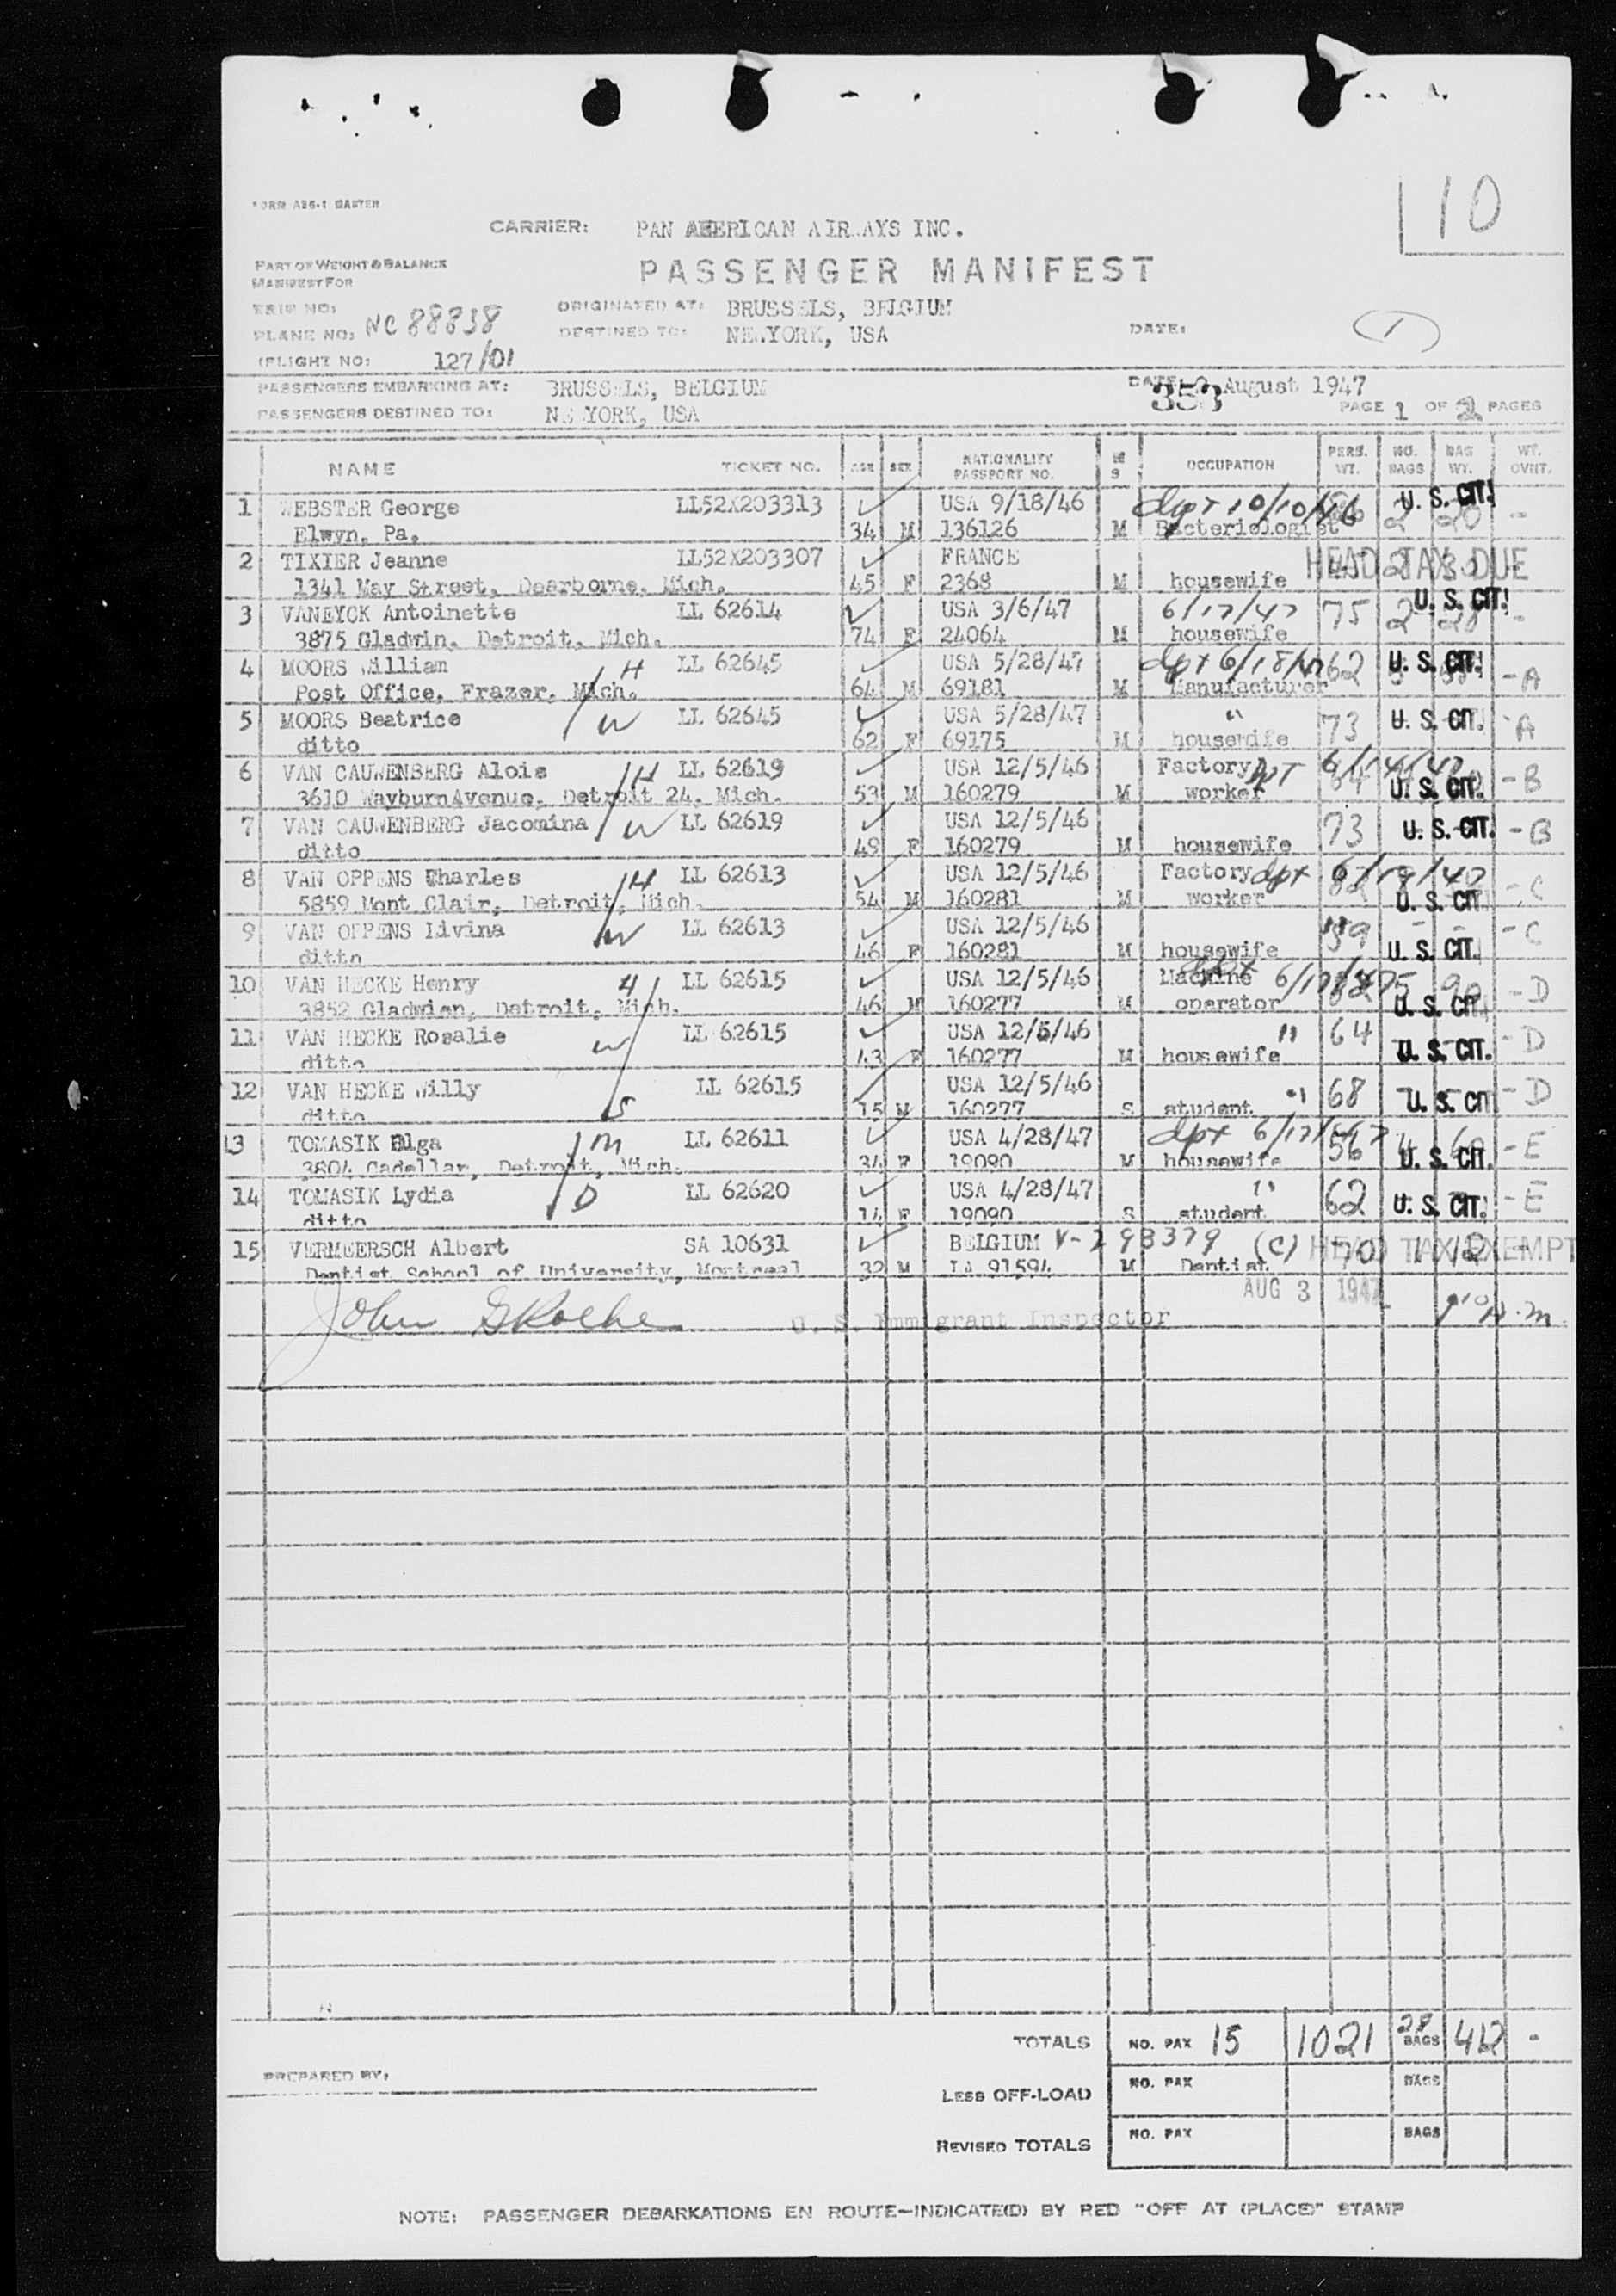 10
FORM A86-1 MASTER
CARRIER: PAN AMERICAN AIRWAYS INC.
PART OF WEIGHT & BALANCE
MANIFEST FOR
PASSENGER MANIFEST
TRIP NO:
ORIGINATED AT: BRUSSELS, BELGIUM
PLANE NO: NC 88838
DESTINED TO: NEWYORK, USA
DATE:
1
(FLIGHT NO: 127/01
PASSENGERS EMBARKING AT: BRUSSELS, BELGIUM
DATE: August 1947
353
PASSENGERS DESTINED TO: NEWYORK, USA
PAGE 1 OF 2 PAGES
NAME TICKET NO. AGE SEX NATIONALITY PASSPORT NO. M S OCCUPATION PERS. WT. NO. BAGS BAG WT. WT. OVHT.
1 WEBSTER George LL52X203313 USA 9/18/46 dpt 10/10/46 U. S. CIT.
Elwyn, Pa. 34 M 136126 M Bacteriologist 2 20 -
2 TIXIER Jeanne LL52X203307 FRANCE HEAD TAX DUE
1341 May Street, Dearborne, Mich. 45 F 2368 M housewife
3 VANEYCK Antoinette LL 62614 USA 3/6/47 6/17/47 75 2 20 - U. S. CIT.
3875 Gladwin, Detroit, Mich. 74 F 24064 M housewife
4 MOORS William H LL 62645 USA 5/28/47 dpt 6/18/47 62 U. S. CIT. - A
Post Office, Frazer, Mich. 64 M 69181 M Manufacturer
5 MOORS Beatrice W LL 62645 USA 5/28/47 " 73 U. S. CIT. - A
ditto 62 F 69175 M housewife
6 VAN CAUWENBERG Alois H LL 62619 USA 12/5/46 Factory dpt 6/14/47
3610 WayburnAvenue, Detroit 24, Mich. 53 M 160279 M worker 84 U. S. CIT. - B
7 VAN CAUWENBERG Jacomina W LL 62619 USA 12/5/46 73 U. S. CIT. - B
ditto 49 F 160279 M housewife
8 VAN OPPENS Charles H LL 62613 USA 12/5/46 Factory dpt 6/19/47
5859 Mont Clair, Detroit, Mich. 54 M 160281 M worker 82 U. S. CIT. - C
9 VAN OPPENS Livina W LL 62613 USA 12/5/46 59 - - - C
ditto 46 F 160281 M housewife U. S. CIT.
10 VAN HECKE Henry H LL 62615 USA 12/5/46 Machine dpt 6/17/47 5 90 - D
3852 Gladwien, Detroit, Mich. 46 M 160277 M operator 82 U. S. CIT.
11 VAN HECKE Rosalie W LL 62615 USA 12/5/46 " 64 U. S. CIT. - D
ditto 43 F 160277 M housewife
12 VAN HECKE Willy LL 62615 USA 12/5/46 68 U. S. CIT - D
ditto S 15 M 160277 S student "
13 TOMASIK Olga M LL 62611 USA 4/28/47 dpt 6/17/47 56 4 60 - E
3804 Cadellar, Detroit, Mich. 34 F 19090 M housewife U. S. CIT.
14 TOMASIK Lydia D LL 62620 USA 4/28/47 " 62 U. S. CIT. - E
ditto 14 F 19090 S student
15 VERMEERSCH Albert SA 10631 BELGIUM V-298379 (C) 70 1 12 - HEAD TAX EXEMPT
Dentist School of University, Montreal 32 M LA 91594 M Dentist
AUG 3 1947
John G Roche U. S. Immigrant Inspector
TOTALS NO. PAX 15 1021 28 BAGS 412 -
PREPARED BY:
LESS OFF-LOAD NO. PAX BAGS
REVISED TOTALS NO. PAX BAGS
NOTE: PASSENGER DEBARKATIONS EN ROUTE—INDICATE(D) BY RED "OFF AT (PLACE)" STAMP